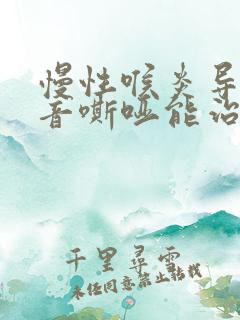 慢性喉炎导
音嘶哑能治
千里寻云
未经同意禁止转载